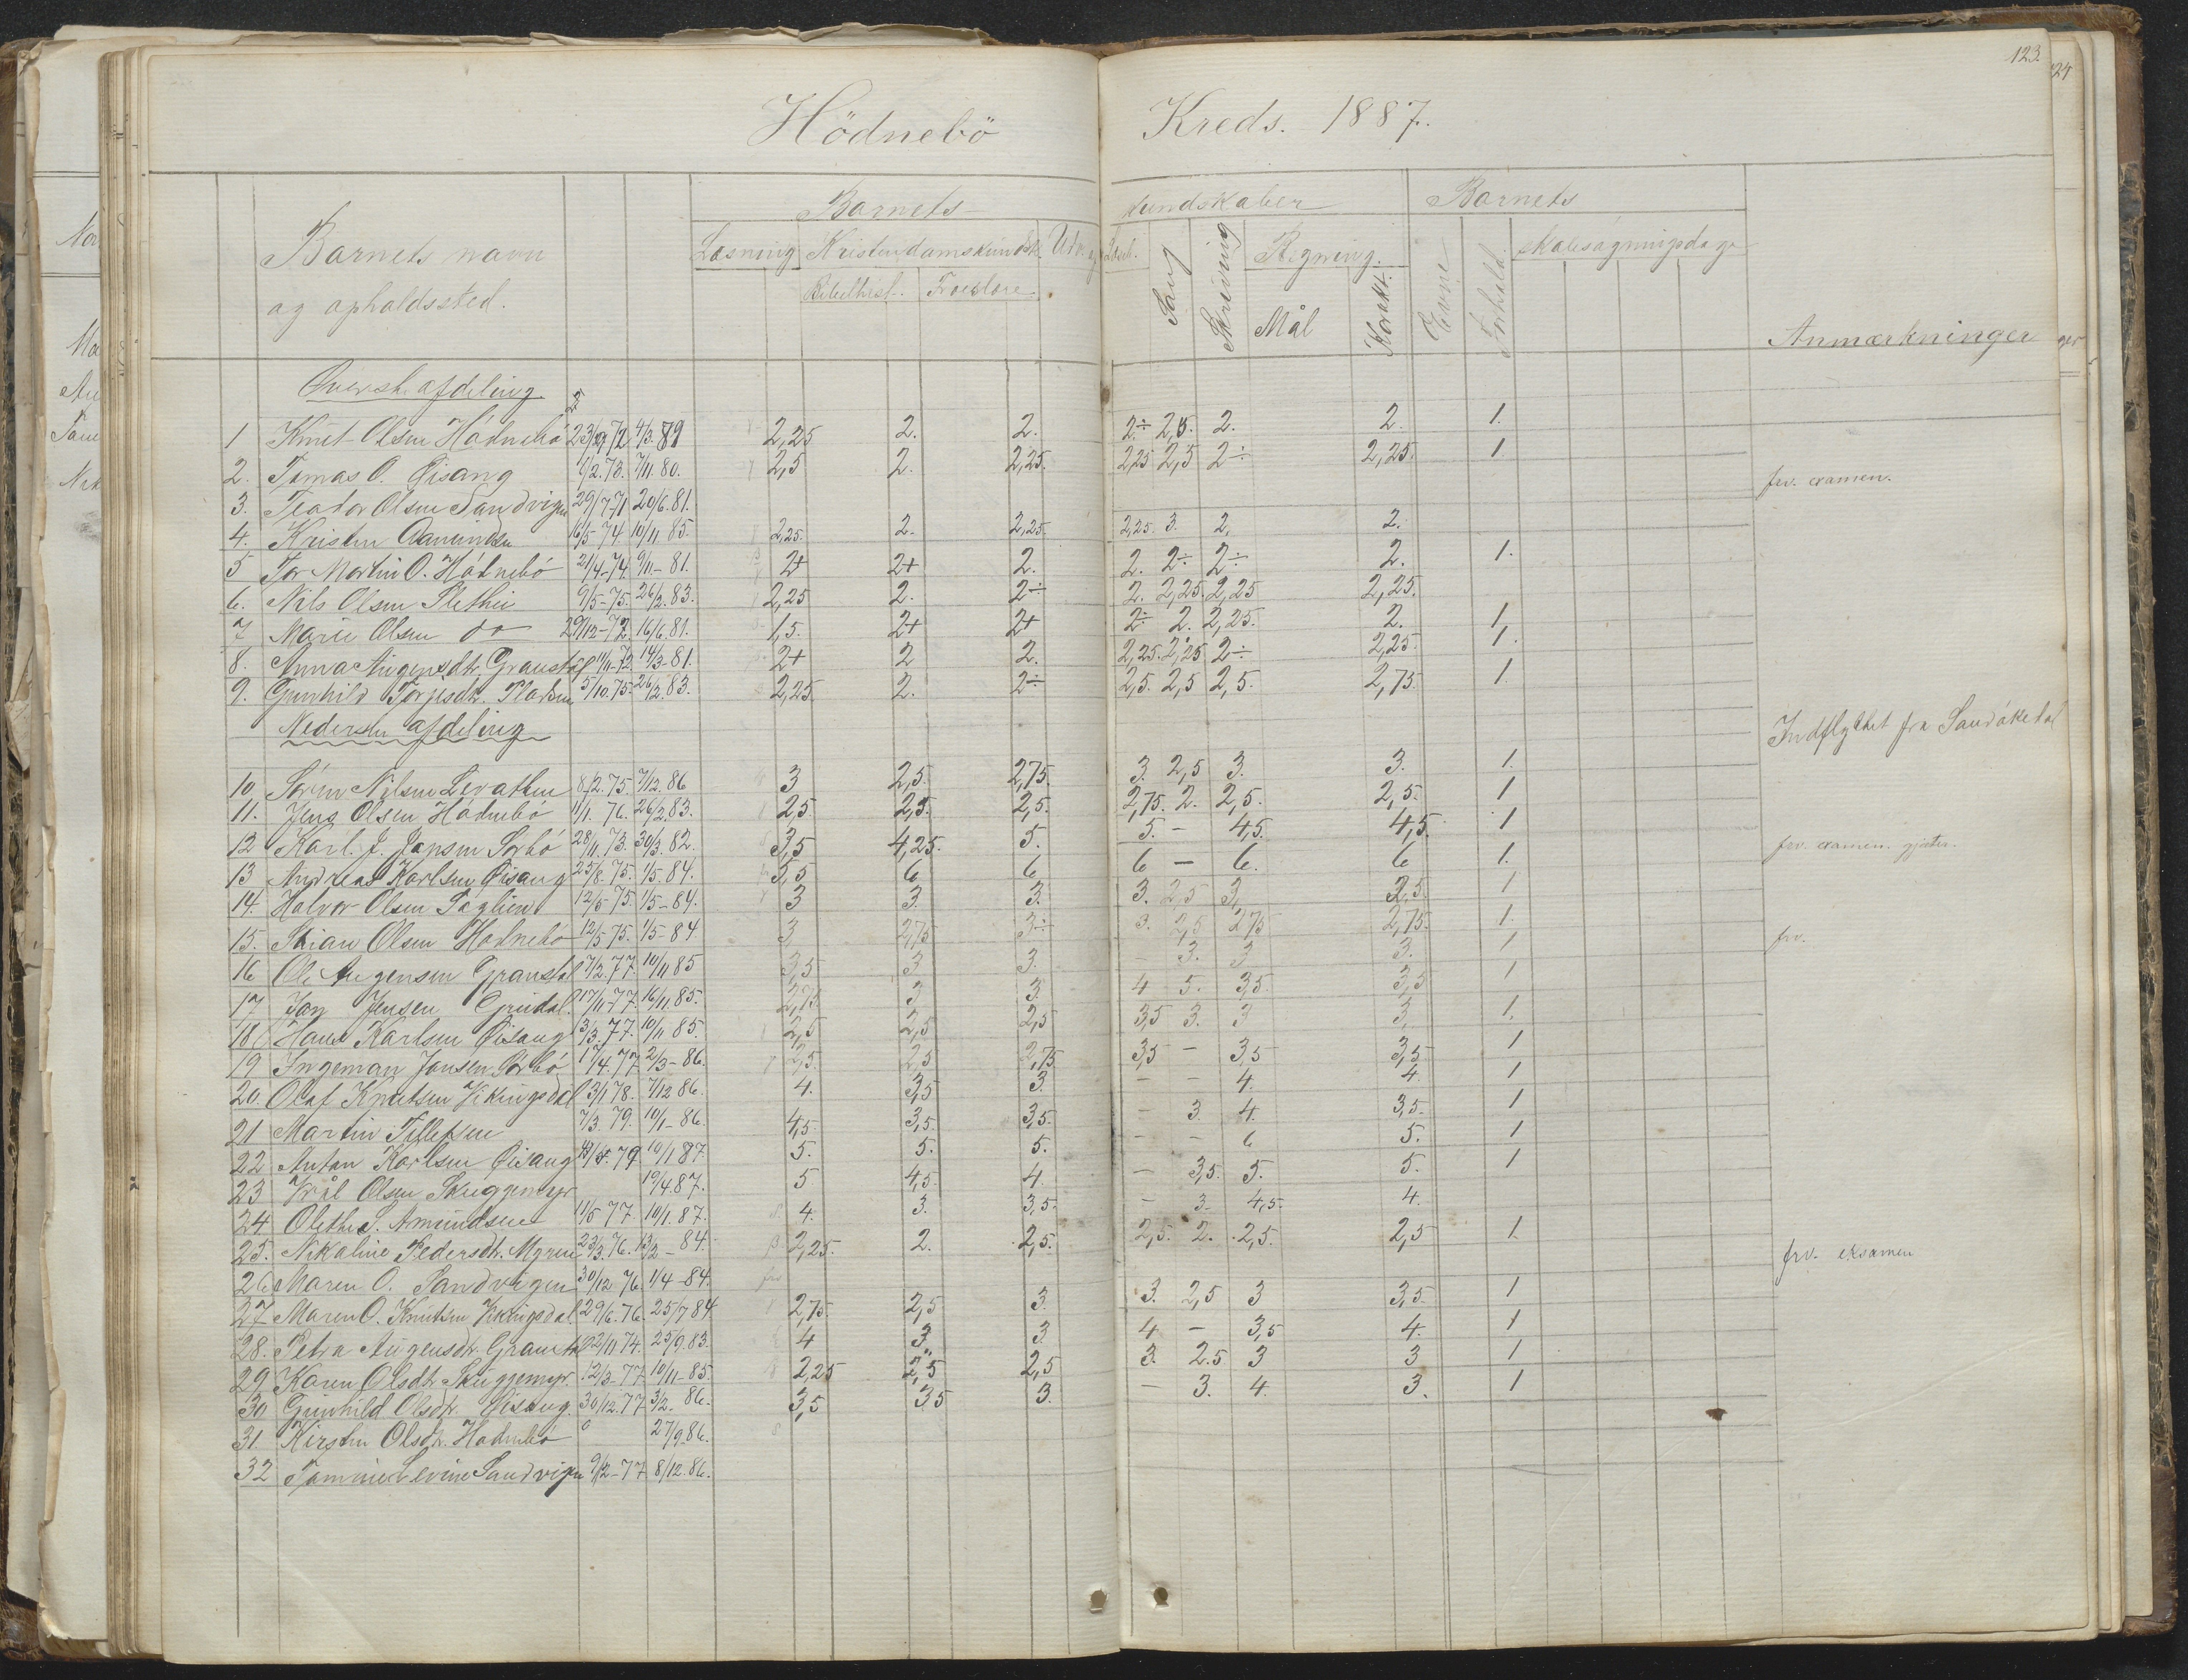 123.
24
Hödnebö Kreds. 1887.
Barnets navn
og opholdssted.
Barnets kundskaber
Læsning Kristendomskundsk. Udv. og
Bibelhist. Troeslære
Sang Skrivning Regning.
Mål Karakt.
Barnets
Evne Forhold. skolesøgningsdage
Anmærkninger
Øverste afdeling.
1 Knut Olsen Hødnebø 23/9 72 4/3. 81 2,25 2. 2. 2÷ 2,5. 2. 2. 1.
2. Tomas O. Øisang 9/2. 73. 7/11 80. 2,5 2. 2,25. 2,25 2,5 2÷ 2,25. 1
3. Teodor Olsen Sandvigen 29/7-71 20/6. 81. frv. examen.
4. Kristen Aamundsen 16/5 74. 10/11 85. 2,25. 2. 2,25. 2,25. 3. 2. 2.
5 Tor Martin O. Hødnebø 21/4-74. 9/11-81. 2+ 2+ 2. 2. 2÷ 2÷ 2. 1.
6. Nils Olsen 9/5-75. 26/2. 83. 2,25 2. 2÷ 2. 2,25. 2,25 2,25.
7 Marie Olsen do 29/12-72. 16/6. 81. 1,5. 2+ 2+ 2÷ 2. 2,25. 2. 1,
8. Anna Augensdtr. Granstøl 11/11-72. 14/3-81. 2+ 2 2. 2,25. 2,25 2÷ 2,25 1.
9. Gunhild Torjesdtr. 5/10. 75. 26/2. 83. 2,25. 2. 2÷ 2,5. 2,5 2,5. 2,75. 1
Nederste afdeling
10 Sørin Nilsen 8/2. 75. 7/12. 86 3 2,5. 2,75. 3. 2,5 3. 3. 1. Indflyttet fra Sandøkedal
11. Jens Olsen Hødnebø 11/1. 76. 26/2. 83. 2,5. 2,5. 2,5. 2,75. 2. 2,5. 2,5. 1
12 Karl. J. Jansen Sørbø 28/11. 73. 30/3. 82. 3,5 4,25. 5. 5. - 4,5. 4,5. 1
13 Andreas Karlsen Øisang 25/8. 75. 1/5. 84. 5,5 6 6 6 - 6. 6 1. frv. examen. gjæter.
14. Halvor Olsen 12/5 75. 1/5-84. 3 3. 3. 3. 2,5 3, 2,5. 1
15. Olsen Hødnebø 12/5 75. 1/5-84 3 2,75 3÷ 3. 2,5 2,75 2,75. 1.
16 Ole Augensen Granstøl 17/2. 77. 10/11 85 3,5 3 3. - 3. 3 3. 1 frv.
17 Jan Jensen 17/11-77. 16/11 85. 2,75. 3 3. 4 5. 3,5. 3,5 1
18 Hans Karlsen Øisang 13/3. 77. 10/11 85. 2,5 2,5 2,5 3,5 3. 3 3, 1.
19 Ingeman Jansen Sørbø 17/4. 77 2/3-86. 2,5. 2,5 2,75 3,5 - 3,5 3,5 1
20. Olaf Knutsen Vikingsdal 3/1 78. 7/12 86. 4. 3,5 3. - - 4. 4. 1
21 Martin Tellefsen 7/3. 79. 10/1-86. 4,5 3,5. 3,5. - 3. 4. 3,5. 1
22 Anton Karlsen Øisang 79 10/1 87. 5. 5. 5. - - 6 5. 1
23 Olsen Skuggemyr 19/4. 87. 5 4,5 4. - 3,5. 5. 5. 1
24 Olethe S. Amundsen 11/5 77 10/1. 87. 4. 3. 3,5. - 3. 4,5. 4.
25. Nikoline Pedersdtr. Myren 23/3. 76. 13/2-84. 2,25. 2. 2,5. 2,5. 2. 2,5. 2,5 1.
26 Maren O. Sandvigen 30/12 76 1/4-84. frv. eksamen
27 Maren O. Knutsen Vikingsdal 29/6. 76. 25/7 84 2,75. 2,5 3. 3. 2,5 3 3,5. 1
28. Petra Augensdtr. Granstøl 22/11 74. 25/9. 83. 4 3. 3. 4 - 3,5 4. 1
29 Karen Olsdtr. Skuggemyr. 12/3-77 10/11-85 2,25 2,5 2,5 3. 2.5 3 3 1
30 Gunhild Olsdtr. Øisang. 30/12. 77 3/2. 86. 3,5 3,5 3. - 3. 4. 3. 1
31. Kirsten Olsdtr. Hødnebø 27/9-86.
32 Levine Sandvigen 9/12-77 8/12. 86.